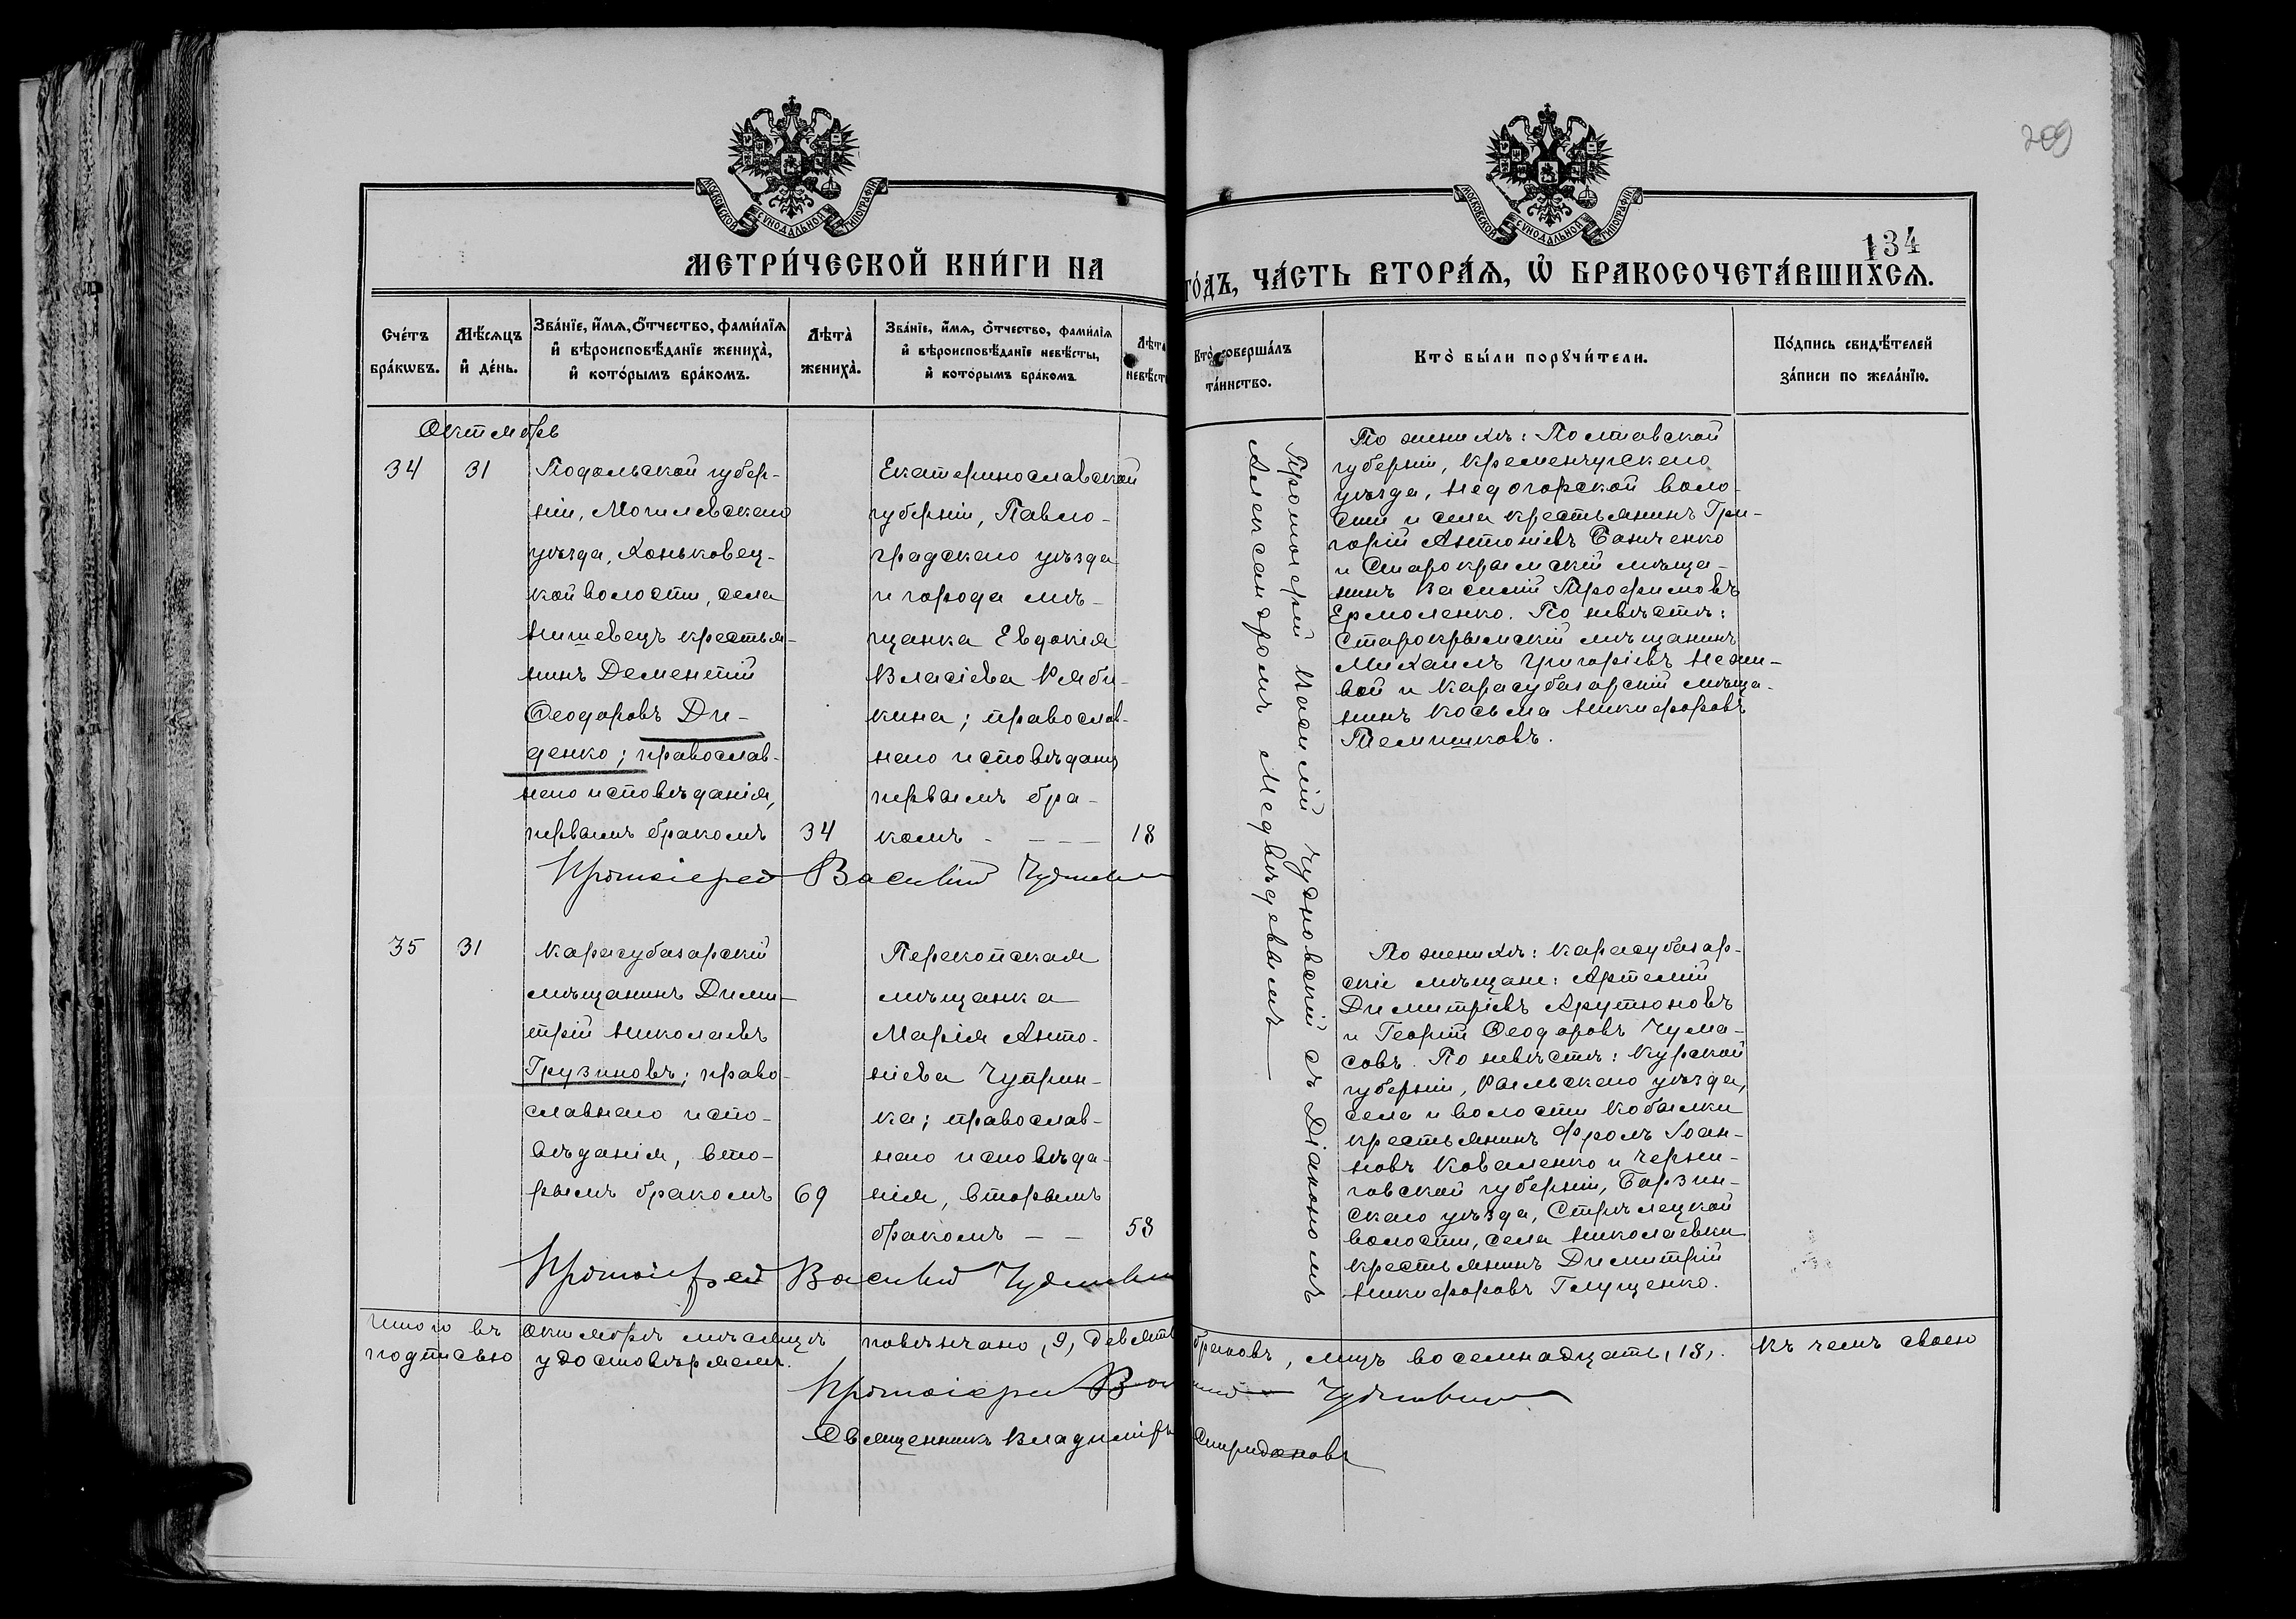 209
МОСКОВСКОЙ СѴНОДАЛЬНОЙ ТИПОГРАФІИ
МОСКОВСКОЙ СѴНОДАЛЬНОЙ ТИПОГРАФІИ
134
МЕТРИ́ЧЕСКОЙ КНИ́ГИ НА
ГО́ДЪ, ЧА́СТЬ ВТОРА́Ѧ, Ѡ҆ БРАКОСОЧЕТА́ВШИХСѦ.
Сче́тъ
бра́кѡвъ.
Мѣ́сѧцъ
и҆ де́нь.
Зва́нїе, и҆́мѧ, ѻ҆́тчество, фами́лїѧ
и҆ вѣроисповѣ́данїе жениха̀,
и҆ кото́рымъ бра́комъ.
Лѣта̀
жениха̀.
Зва́нїе, и҆́мѧ, ѻ҆́тчество, фами́лїѧ
и҆ вѣроисповѣ́данїе невѣ́сты,
и҆ кото́рымъ бра́комъ
Лѣта
невѣст
Кто̀ соверша́лъ
та́инство.
Кто̀ бы́ли порꙋчи́тели.
По́дпись свидѣ́телей
за́писи по жела́нїю.
Октябрь
34
31
Подольской губер-
ніи, Могилевскаго
уѣзда, Хоньковец-
кой волости, села
Нишевецъ крестья-
нинъ Дементій
Ѳеодоровъ Ди-
денко; православ-
наго исповѣданія,
первымъ бракомъ
34
Екатеринославской
губерніи, Павло-
градскаго уѣзда
и города мѣ-
щанка Евдокія
Власіева Ряби-
кина; православ-
наго исповѣданія
первымъ бра-
комъ - - - -
18
Протоіерей Василій Чудновскій съ Діакономъ
Александромъ Медвѣдевымъ
По женихѣ: Полтавской
губерніи, Кременчугскаго
уѣзда, Недогорской воло-
сти и села крестьянинъ Гри-
горій Антоніевъ Санченко
и Старокрымскій мѣща-
нинъ Василій Трофимовъ
Ермоленко. По невѣстѣ:
Старокрымскій мѣщанинъ
Михаилъ Григоріевъ Нежи-
вой и Карасубазарскій мѣща-
нинъ Косьма Никифоровъ
Темпшковъ.
Протоіерей Василій Чуднов
35
31
Карасубазарскій
мѣщанинъ Дими-
трій Николаевъ
Грузиновъ; право-
славнаго испо-
вѣданія, вто-
рымъ бракомъ
69
Перекопская
мѣщанка
Марія Анто-
ніева Чуприн-
ка; православ-
наго исповѣда-
нія, вторымъ
бракомъ - -
58
По женихѣ: Карасубазар-
скіе мѣщане: Артемій
Димитріевъ Арутюновъ
и Георгій Ѳеодоровъ Чума-
совъ. По невѣстѣ: Курской
губерніи, Рыльскаго уѣзда,
села и волости Кобылки
крестьянинъ Фролъ Іоан-
новъ Коваленко и Черни-
говской губерніи, Борзин-
скаго уѣзда, Стрѣлецкой
волости, села Николаевки
крестьянинъ Димитрій
Никифоровъ Глущенко.
Протоіерей Василій Чудновск
Итого въ Октябрѣ мѣсяцѣ повѣнчано, 9, девять браковъ, лицъ восемнадцать, 18,. Къ чемъ своею
подписью удостовѣряемъ.
Протоіерей Василій Чудновскій
Священникъ Владиміръ Спиридоновъ